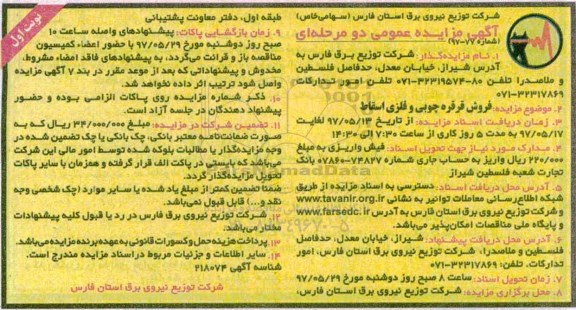 نوبت اول
شرکت توزیع نیروی برق استان فارس (سهامی خاص)
آگهی مزایده عمومی دو مرحله‌ای
(شماره ۷۷-۹۷)
۱. نام مزایده‌گذار: شرکت توزیع برق فارس به
آدرس شیراز، خیابان معدل، حدفاصل فلسطین
و ملاصدرا تلفن ۸۰-۳۲۳۱۹۵۷۴-۰۷۱ تلفن امور تدارکات
۰۷۱-۳۲۳۱۷۸۶۹
۲. موضوع مزایده: فروش قرقره چوبی و فلزی اسقاط
۳. زمان دریافت اسناد مزایده: از تاریخ ۹۷/۰۵/۱۳ لغایت
۹۷/۰۵/۱۷ به مدت ۵ روز کاری از ساعت ۷:۳۰ الی ۱۴:۳۰
۴. مدارک مورد نیاز جهت تحویل اسناد: فیش واریزی به مبلغ
۲۲۰/۰۰۰ ریال واریز به حساب جاری شماره ۷۴۸۲۷-۰۷۸۶۰ بانک
تجارت شعبه فلسطین شیراز
۵. آدرس محل دریافت اسناد: دسترسی به اسناد مزایده از طریق
شبکه اطلاع‌رسانی معاملات توانیر به نشانی www.tavanir.org.ir
و شرکت توزیع نیروی برق استان فارس به آدرس www.farsedc.ir
و پایگاه ملی مناقصات امکان‌پذیر می‌باشد.
۶. آدرس محل دریافت پیشنهاد: شیراز، خیابان معدل، حدفاصل
فلسطین و ملاصدرا، شرکت توزیع نیروی برق استان فارس، امور
تدارکات. تلفن: ۳۲۳۱۷۸۶۹-۰۷۱
۷. زمان تحویل اسناد: ساعت ۸ صبح روز دوشنبه مورخ ۹۷/۰۵/۲۹
۸. محل برگزاری مزایده: شرکت توزیع نیروی برق استان فارس،
طبقه اول، دفتر معاونت پشتیبانی
۹. زمان بازگشایی پاکات: پیشنهادهای واصله ساعت ۱۰
صبح روز دوشنبه مورخ ۹۷/۰۵/۲۹ با حضور اعضاء کمیسیون
مناقصه باز و قرائت می‌گردد، به پیشنهادهای فاقد امضاء مشروط،
مخدوش و پیشنهاداتی که بعد از موعد مقرر در بند ۷ آگهی مزایده
واصل شود ترتیب اثر داده نخواهد شد.
۱۰. ذکر شماره مزایده روی پاکات الزامی بوده و حضور
پیشنهاد دهندگان در جلسه آزاد است.
۱۱. تضمین شرکت در مزایده: مبلغ ۳۴/۰۰۰/۰۰۰ ریال که به
صورت ضمانت‌نامه معتبر بانکی، چک بانکی یا چک تضمین شده در
وجه مزایده‌گذار یا مطالبات بلوکه شده توسط امور مالی این شرکت
می‌باشد که بایستی در پاکت الف قرار گرفته و همزمان با سایر پاکات
تحویل مزایده‌گذار گردد.
ضمنا تضمین کمتر از مبلغ یاد شده یا سایر موارد (چک شخصی وجه
نقد و...) قابل قبول نمی‌باشد.
۱۲. شرکت توزیع نیروی برق فارس در رد یا قبول کلیه پیشنهادات
مختار می‌باشد.
۱۳. پرداخت هزینه حمل و کسورات قانونی به عهده برنده مزایده می‌باشد.
۱۴. سایر اطلاعات و جزئیات مربوط در اسناد مزایده مندرج است.
شناسه آگهی ۲۱۸۰۷۴
شرکت توزیع نیروی برق استان فارس